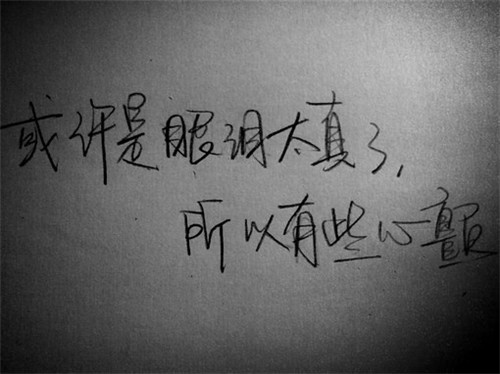 或许是眼泪太真了，
所以有些心颤